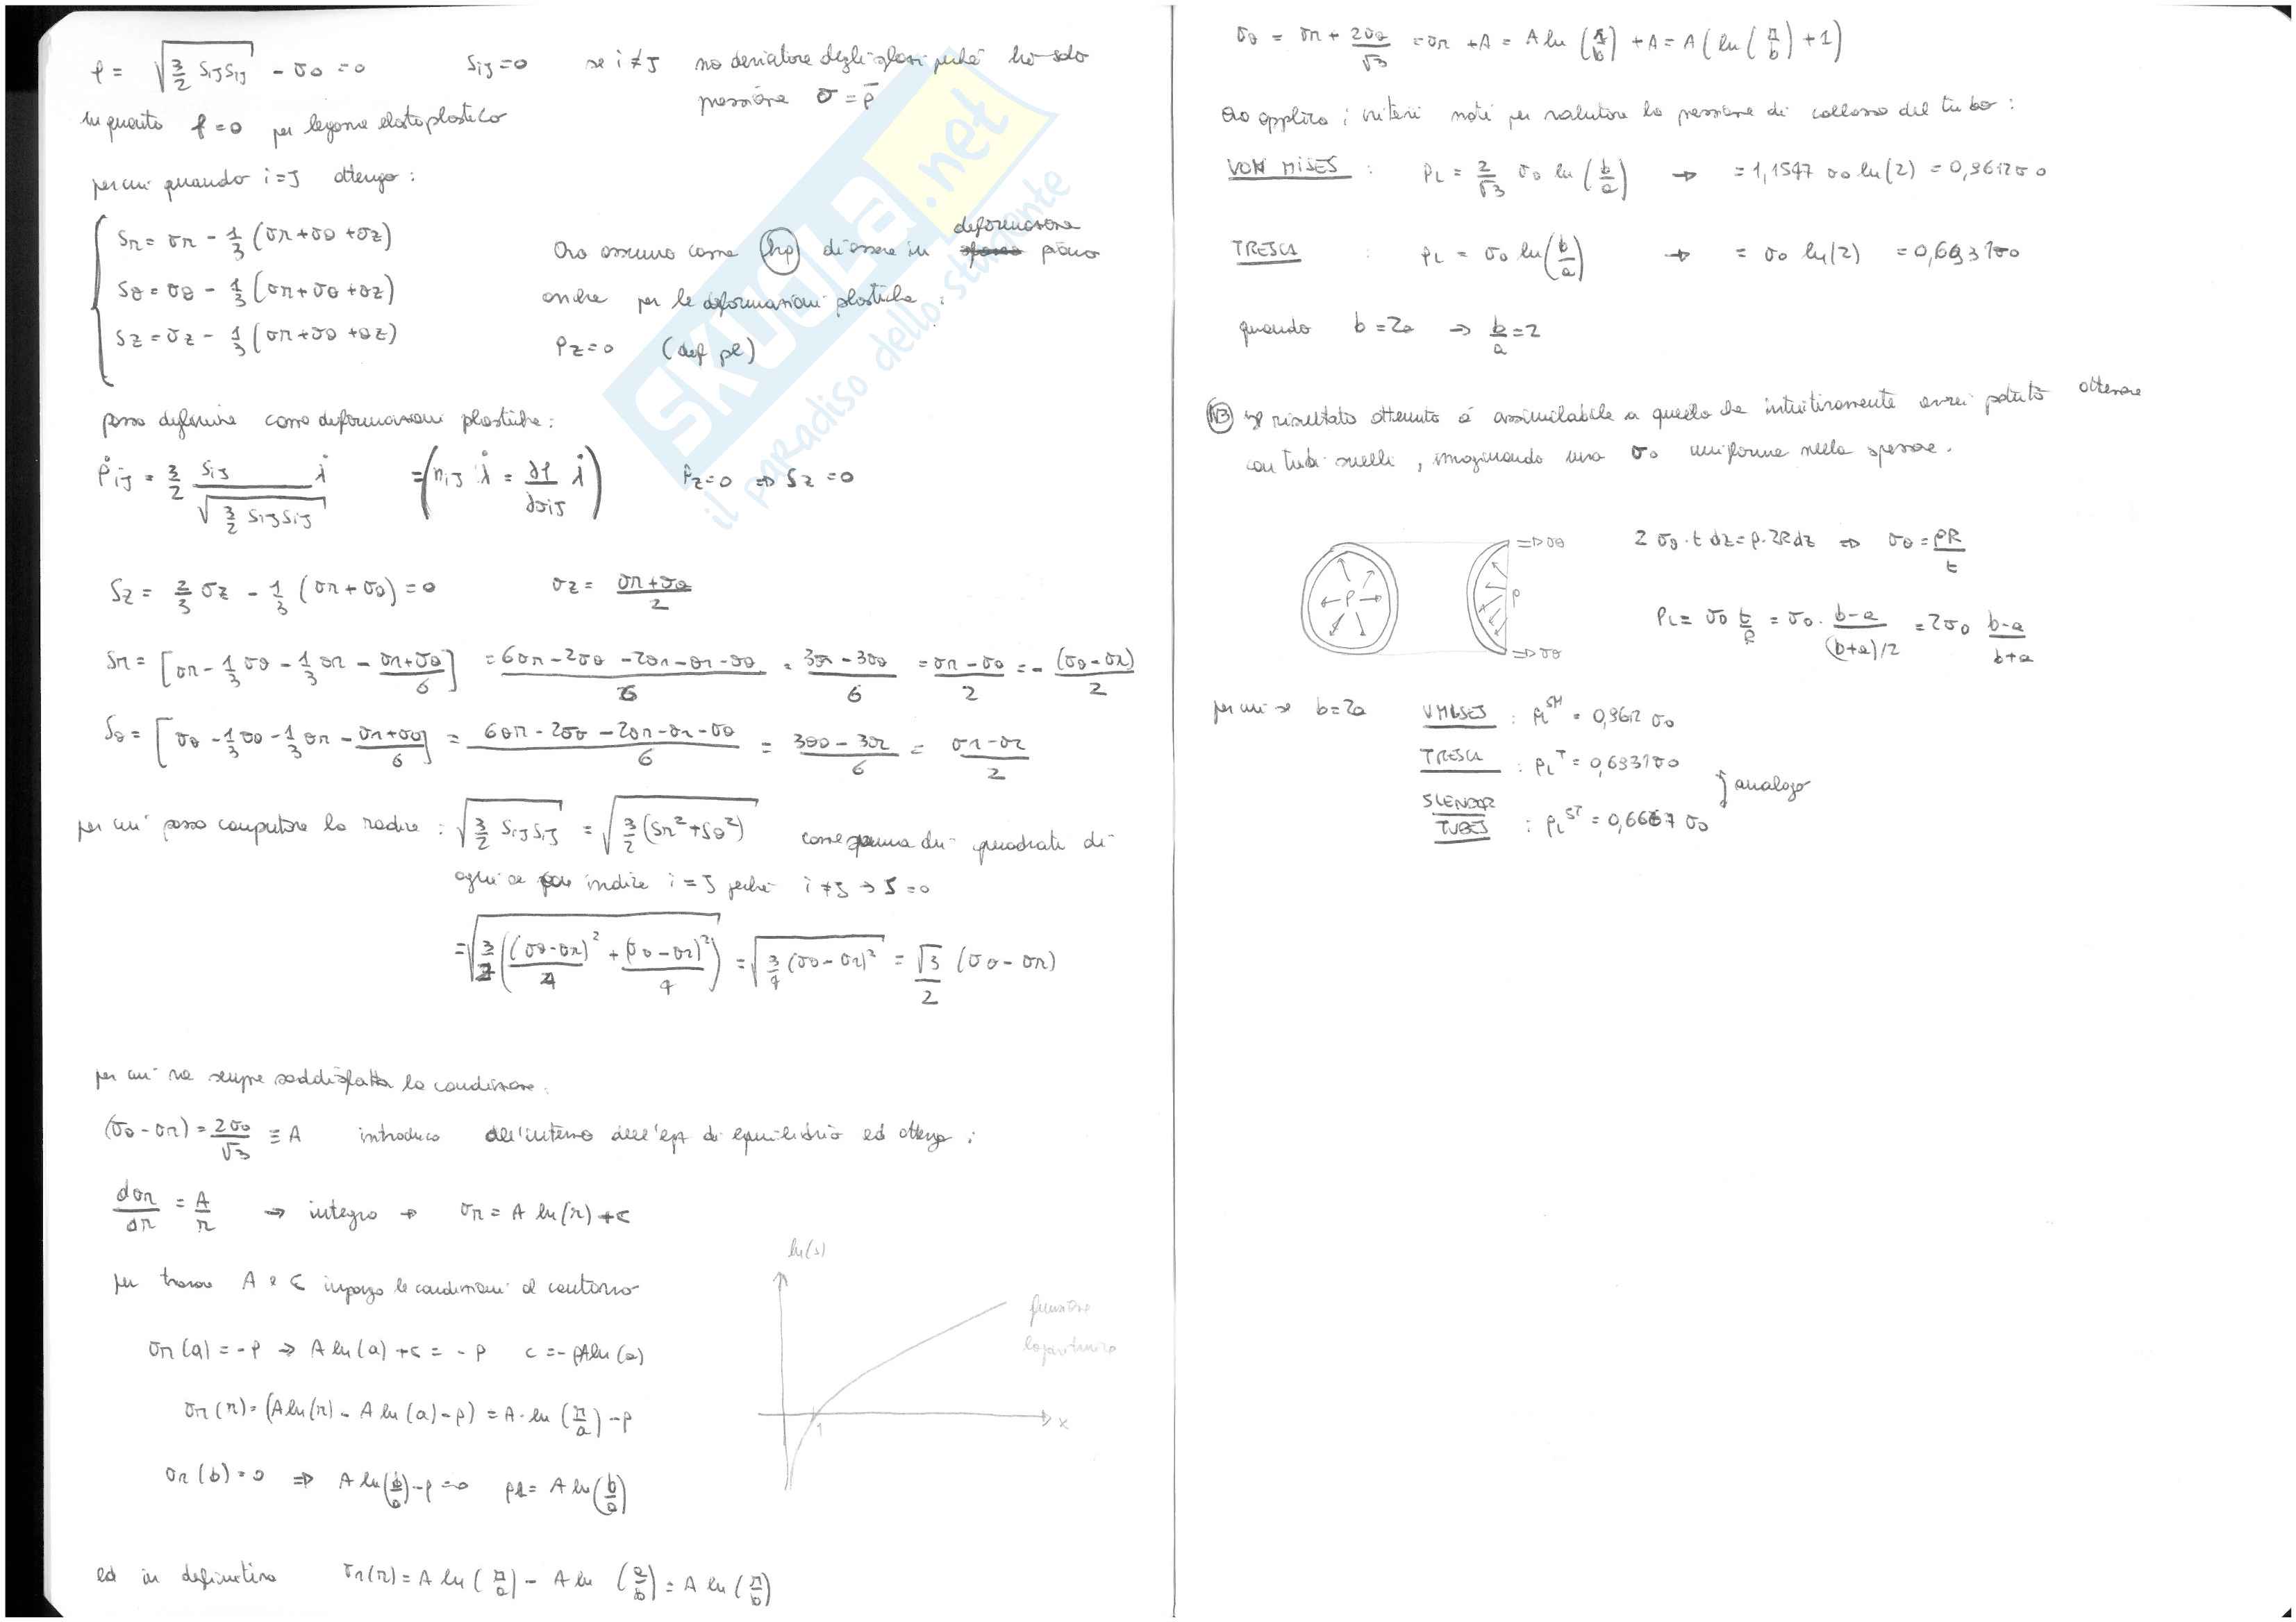 f = √(3/2 Sij Sij) - σ0 = 0 Sij = 0 se i ≠ j no deviatore degli sforzi perché ho solo
pressione σ = p̄
in quanto f = 0 per legame elastoplastico
per cui quando i = j ottengo:
Sr = σr - 1/3 (σr + σθ + σz)
Sθ = σθ - 1/3 (σr + σθ + σz)
Sz = σz - 1/3 (σr + σθ + σz)
Ora assumo come hp di essere in deformazione piana
anche per le deformazioni plastiche:
Pz = 0 (def pl)
posso definire come deformazioni plastiche:
Ṗij = 3/2 Sij/√(3/2 Sij Sij) λ̇ = (nij λ̇ = ∂f/∂σij λ̇) Ṗz = 0 ⇒ Sz = 0
Sz = 2/3 σz - 1/3 (σr + σθ) = 0 σz = (σr + σθ)/2
Sr = [σr - 1/3 σθ - 1/3 σr - (σr + σθ)/6] = (6σr - 2σθ - 2σr - σr - σθ)/6 = (3σr - 3σθ)/6 = (σr - σθ)/2 = - (σθ - σr)/2
Sθ = [σθ - 1/3 σθ - 1/3 σr - (σr + σθ)/6] = (6σr - 2σθ - 2σr - σr - σθ)/6 = (3σθ - 3σr)/6 = (σr - σr)/2
per cui posso computare la radice: √(3/2 Sij Sij) = √(3/2 (Sr² + Sθ²)) come somma dei quadrati di
indice i = j perché i ≠ j → S = 0
= √(3/2 ((σθ - σr)²/4 + (σθ - σr)²/4)) = √(3/4 (σθ - σr)²) = √3/2 (σθ - σr)
per cui va sempre soddisfatta la condizione:
(σθ - σr) = 2σ0/√3 ≡ A introduco all'interno dell'eq di equilibrio ed ottengo:
dσr/dr = A/r → integro → σr = A ln(r) + c
per trovare A e C impongo le condizioni al contorno
σr(a) = -P ⇒ A ln(a) + c = -P c = -pAln(a)
σr(r) = (A ln(r) - A ln(a) - p) = A · ln(r/a) - p
σr(b) = 0 ⇒ A ln(b/a) - p = 0 pL = A ln(b/a)
ln(x)
funzione
logaritmica
1
x
ed in definitiva σr(r) = A ln(r/a) - A ln(a/b) = A ln(r/b)
σθ = σr + 2σ0/√3 = σr + A = A ln(r/b) + A = A(ln(r/b) + 1)
Ora applico i criteri noti per valutare la pressione di collasso del tubo:
VON MISES : PL = 2/√3 σ0 ln(b/a) → = 1,1547 σ0 ln(2) = 0,9612 σ0
TRESCA : PL = σ0 ln(b/a) → = σ0 ln(2) = 0,6931σ0
quando b = 2a → b/a = 2
NB il risultato ottenuto è assimilabile a quello che intuitivamente avrei potuto ottenere
con tubi snelli, immaginando una σ0 uniforme nello spessore.
P
P
⇒ σθ
⇒ σθ
2 σθ · t dz = p · 2R dz ⇒ σθ = PR/t
PL = σ0 t/R = σ0 · (b-a)/((b+a)/2) = 2σ0 (b-a)/(b+a)
per cui se b = 2a V MISES : PL^SM = 0,9612 σ0
TRESCA : PL^T = 0,6931σ0
SLENDER TUBES : PL^ST = 0,6667 σ0
analogo
SKUOLA.net
il paradiso dello studente